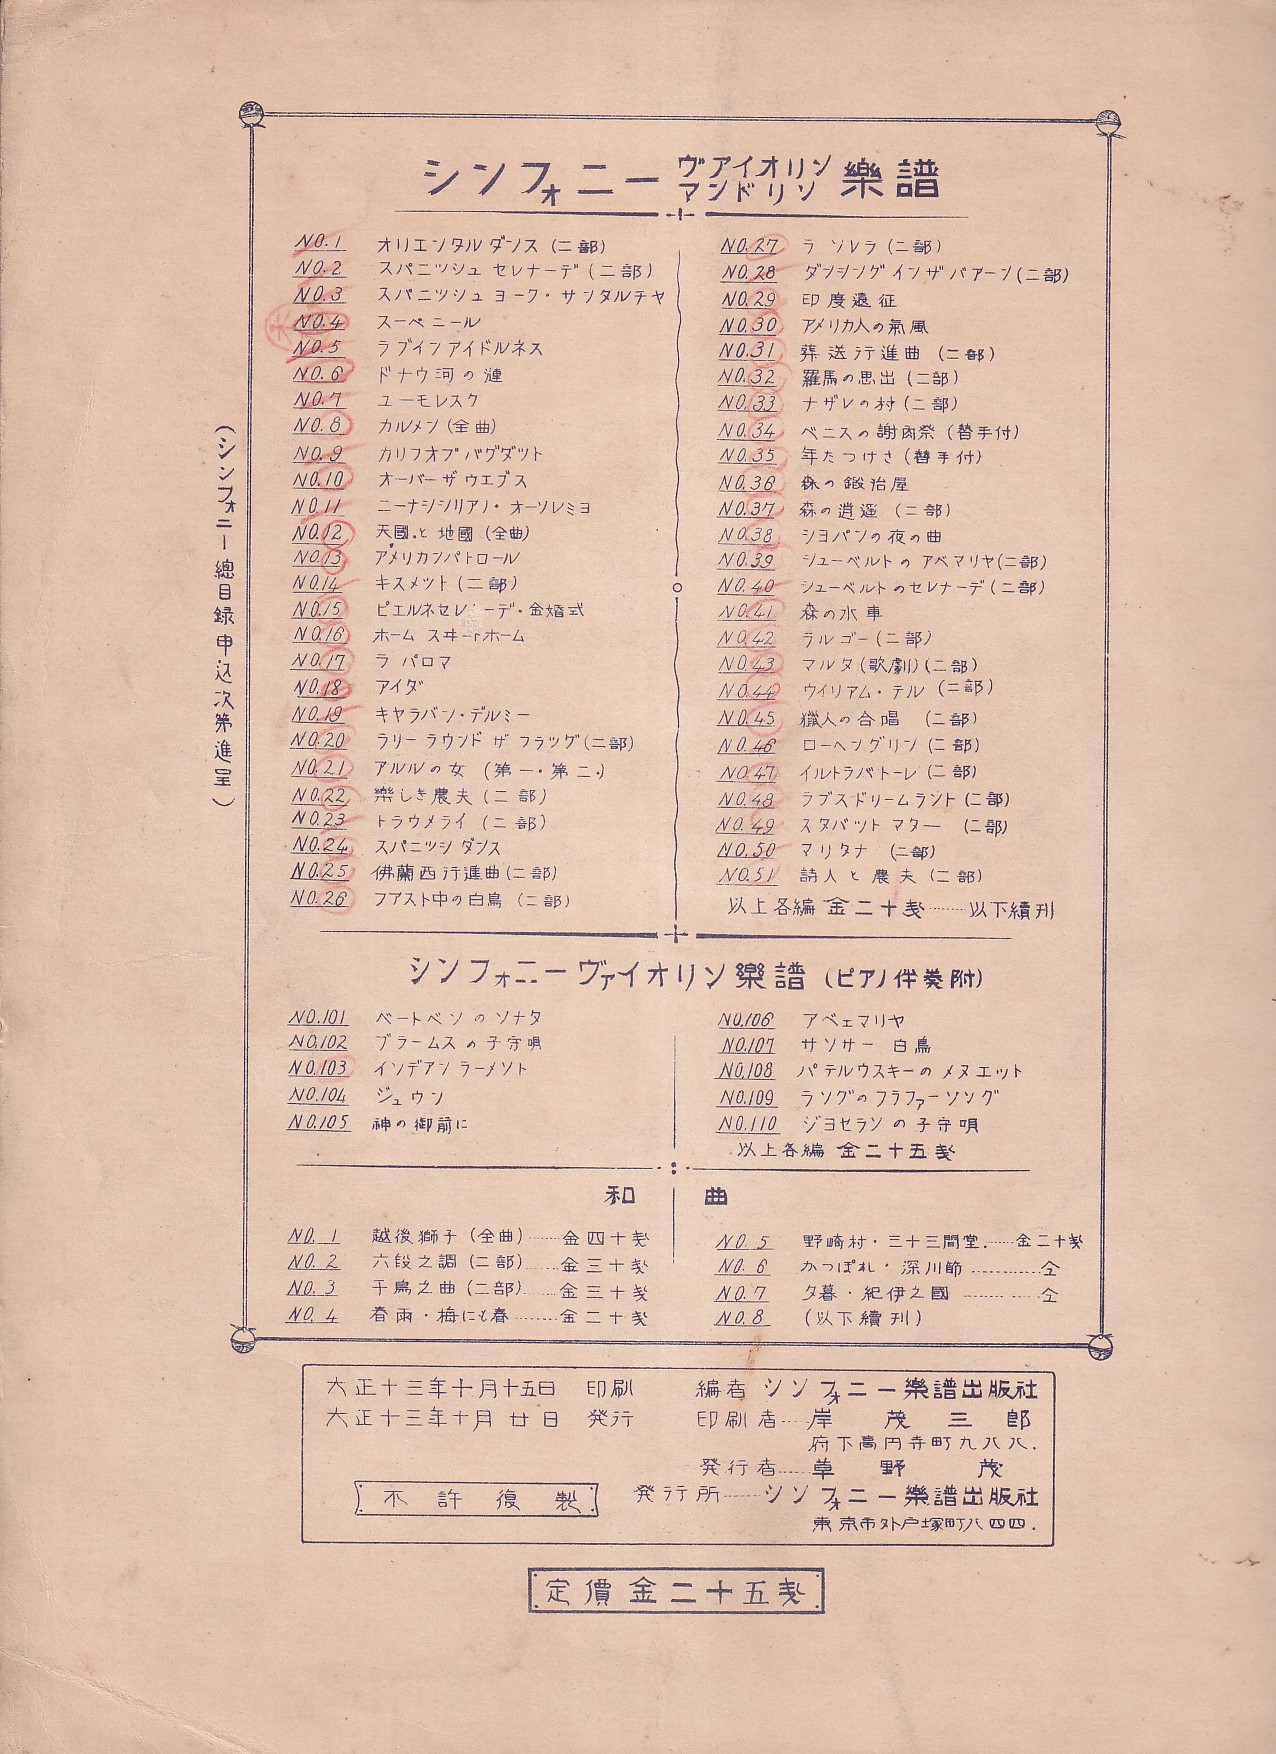 シンフォニー ヴアイオリン マンドリン 樂譜
NO.1 オリエンタルダンス (二部)
NO.2 スパニツシュ セレナーデ (二部)
NO.3 スパニツシュ ヨーク・サンタルチヤ
NO.4 スーベニール
NO.5 ラブインアイドルネス
NO.6 ドナウ河の漣
NO.7 ユーモレスク
NO.8 カルメン (全曲)
NO.9 カリフオブバグダツト
NO.10 オーバーザウエブス
NO.11 ニーナシシリアノ・オーソレミヨ
NO.12 天國と地國 (全曲)
NO.13 アメリカンパトロール
NO.14 キスメツト (二部)
NO.15 ピエルネセレナーデ・金婚式
NO.16 ホーム スヰートホーム
NO.17 ラ パロマ
NO.18 アイダ
NO.19 キヤラバン・デルミー
NO.20 ラリー ラウンド ザ フラッグ (二部)
NO.21 アルルの女 (第一・第二.)
NO.22 樂しき農夫 (二部)
NO.23 トラウメライ (二部)
NO.24 スパニツシ ダンス
NO.25 佛蘭西行進曲 (二部)
NO.26 フアスト中の白鳥 (二部)
NO.27 ラ ソレラ (二部)
NO.28 ダンシングインザバアーン (二部)
NO.29 印度遠征
NO.30 アメリカ人の氣風
NO.31 葬送行進曲 (二部)
NO.32 羅馬の思出 (二部)
NO.33 ナザレの村 (二部)
NO.34 ベニスの謝肉祭 (替手付)
NO.35 年たつけさ (替手付)
NO.36 森の鍛治屋
NO.37 森の逍遥 (二部)
NO.38 シヨパンの夜の曲
NO.39 シューベルトのアベマリヤ (二部)
NO.40 シューベルトのセレナーデ (二部)
NO.41 森の水車
NO.42 ラルゴー (二部)
NO.43 マルタ (歌劇) (二部)
NO.44 ウイリアム・テル (二部)
NO.45 獵人の合唱 (二部)
NO.46 ローヘングリン (二部)
NO.47 イルトラバトーレ (二部)
NO.48 ラブスドリームラント (二部)
NO.49 スタバツトマター (二部)
NO.50 マリタナ (二部)
NO.51 詩人と農夫 (二部)
以上各編 金二十錢……以下續刊
(シンフォニー總目録申込次第進呈)
シンフォニーヴァイオリン樂譜 (ピアノ伴奏附)
NO.101 ベートベンのソナタ
NO.102 ブラームスの子守唄
NO.103 インデアンラーメント
NO.104 ジュウン
NO.105 神の御前に
NO.106 アベェマリヤ
NO.107 サンサー 白鳥
NO.108 パテルウスキーのメヌエット
NO.109 ラングのフラファーソング
NO.110 ジヨセランの子守唄
以上各編 金二十五錢
和 曲
NO.1 越後獅子 (全曲)……金四十錢
NO.2 六段之調 (二部)……金三十錢
NO.3 千鳥之曲 (二部)……金三十錢
NO.4 春雨・梅にも春……金二十錢
NO.5 野崎村・三十三間堂……金二十錢
NO.6 かつぽれ・深川節…………仝
NO.7 夕暮・紀伊之國…………仝
NO.8 (以下續刊)
大正十三年十月十五日 印刷
大正十三年十月廿日 発行
編者 シンフォニー樂譜出版社
印刷者……岸 茂三郎
府下高円寺町九八八.
発行者……草野 茂
不許復製
発行所……シンフォニー樂譜出版社
東京市外戸塚町八四四.
定價金二十五錢